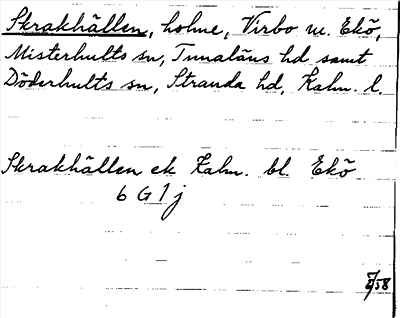 Skrakhällen, holme, Virbo m. Ekö,
Misterhults sn, Tunaläns hd samt
Döderhults sn, Stranda hd, Kalm. l.
Skrakhällen ek Kalm. bl. Ekö
6 G 1 j
58